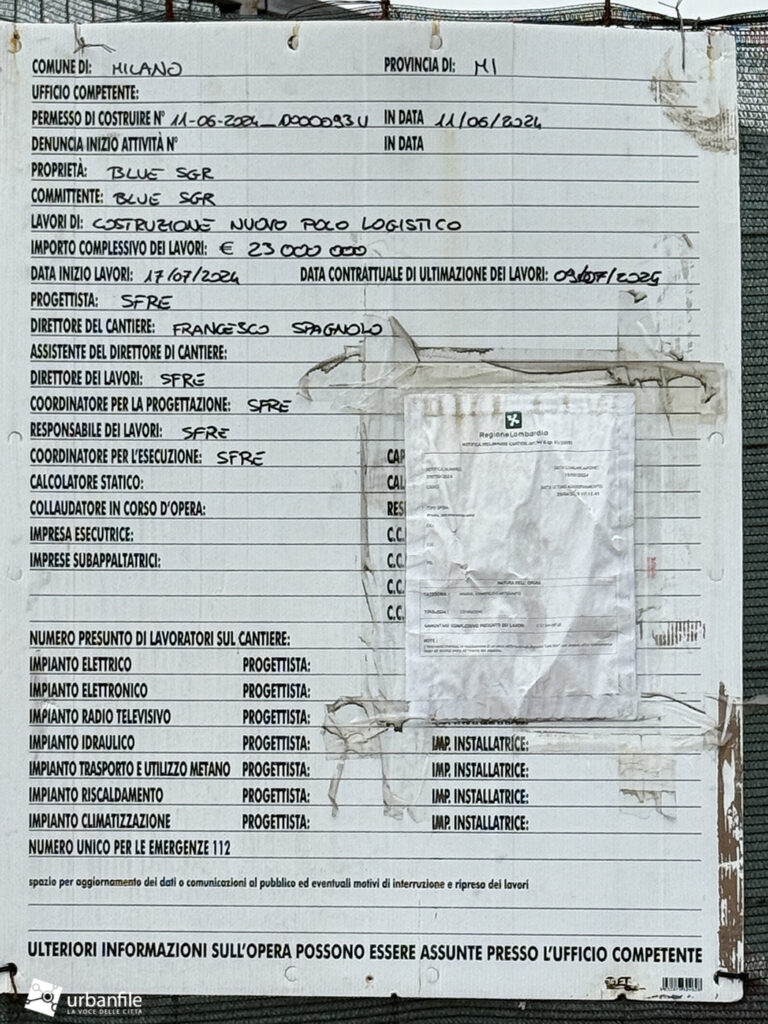 COMUNE DI: MILANO PROVINCIA DI: MI
UFFICIO COMPETENTE:
PERMESSO DI COSTRUIRE N° 11-06-2024_ IN DATA 11/06/2024
DENUNCIA INIZIO ATTIVITÀ N° IN DATA
PROPRIETÀ: BLUE SGR
COMMITTENTE: BLUE SGR
LAVORI DI: COSTRUZIONE NUOVO POLO LOGISTICO
IMPORTO COMPLESSIVO DEI LAVORI: € 23 000 000
DATA INIZIO LAVORI: 17/07/2024 DATA CONTRATTUALE DI ULTIMAZIONE DEI LAVORI:
PROGETTISTA: SFRE
DIRETTORE DEL CANTIERE: FRANCESCO SPAGNOLO
ASSISTENTE DEL DIRETTORE DI CANTIERE:
DIRETTORE DEI LAVORI: SFRE
COORDINATORE PER LA PROGETTAZIONE: SFRE
RESPONSABILE DEI LAVORI: SFRE
COORDINATORE PER L'ESECUZIONE: SFRE CAP
CALCOLATORE STATICO: CAL
COLLAUDATORE IN CORSO D'OPERA: RES
IMPRESA ESECUTRICE: C.C.
IMPRESE SUBAPPALTATRICI: C.C.
C.C.
C.C.
RegioneLombardia
NATURA DELL'OPERA
NOTE :
NUMERO PRESUNTO DI LAVORATORI SUL CANTIERE:
IMPIANTO ELETTRICO PROGETTISTA:
IMPIANTO ELETTRONICO PROGETTISTA:
IMPIANTO RADIO TELEVISIVO PROGETTISTA:
IMPIANTO IDRAULICO PROGETTISTA: IMP. INSTALLATRICE:
IMPIANTO TRASPORTO E UTILIZZO METANO PROGETTISTA: IMP. INSTALLATRICE:
IMPIANTO RISCALDAMENTO PROGETTISTA: IMP. INSTALLATRICE:
IMPIANTO CLIMATIZZAZIONE PROGETTISTA: IMP. INSTALLATRICE:
NUMERO UNICO PER LE EMERGENZE 112
spazio per aggiornamento dei dati o comunicazioni al pubblico ed eventuali motivi di interruzione e ripresa dei lavori
ULTERIORI INFORMAZIONI SULL'OPERA POSSONO ESSERE ASSUNTE PRESSO L'UFFICIO COMPETENTE
urbanfile
LA VOCE DELLE CITTÀ